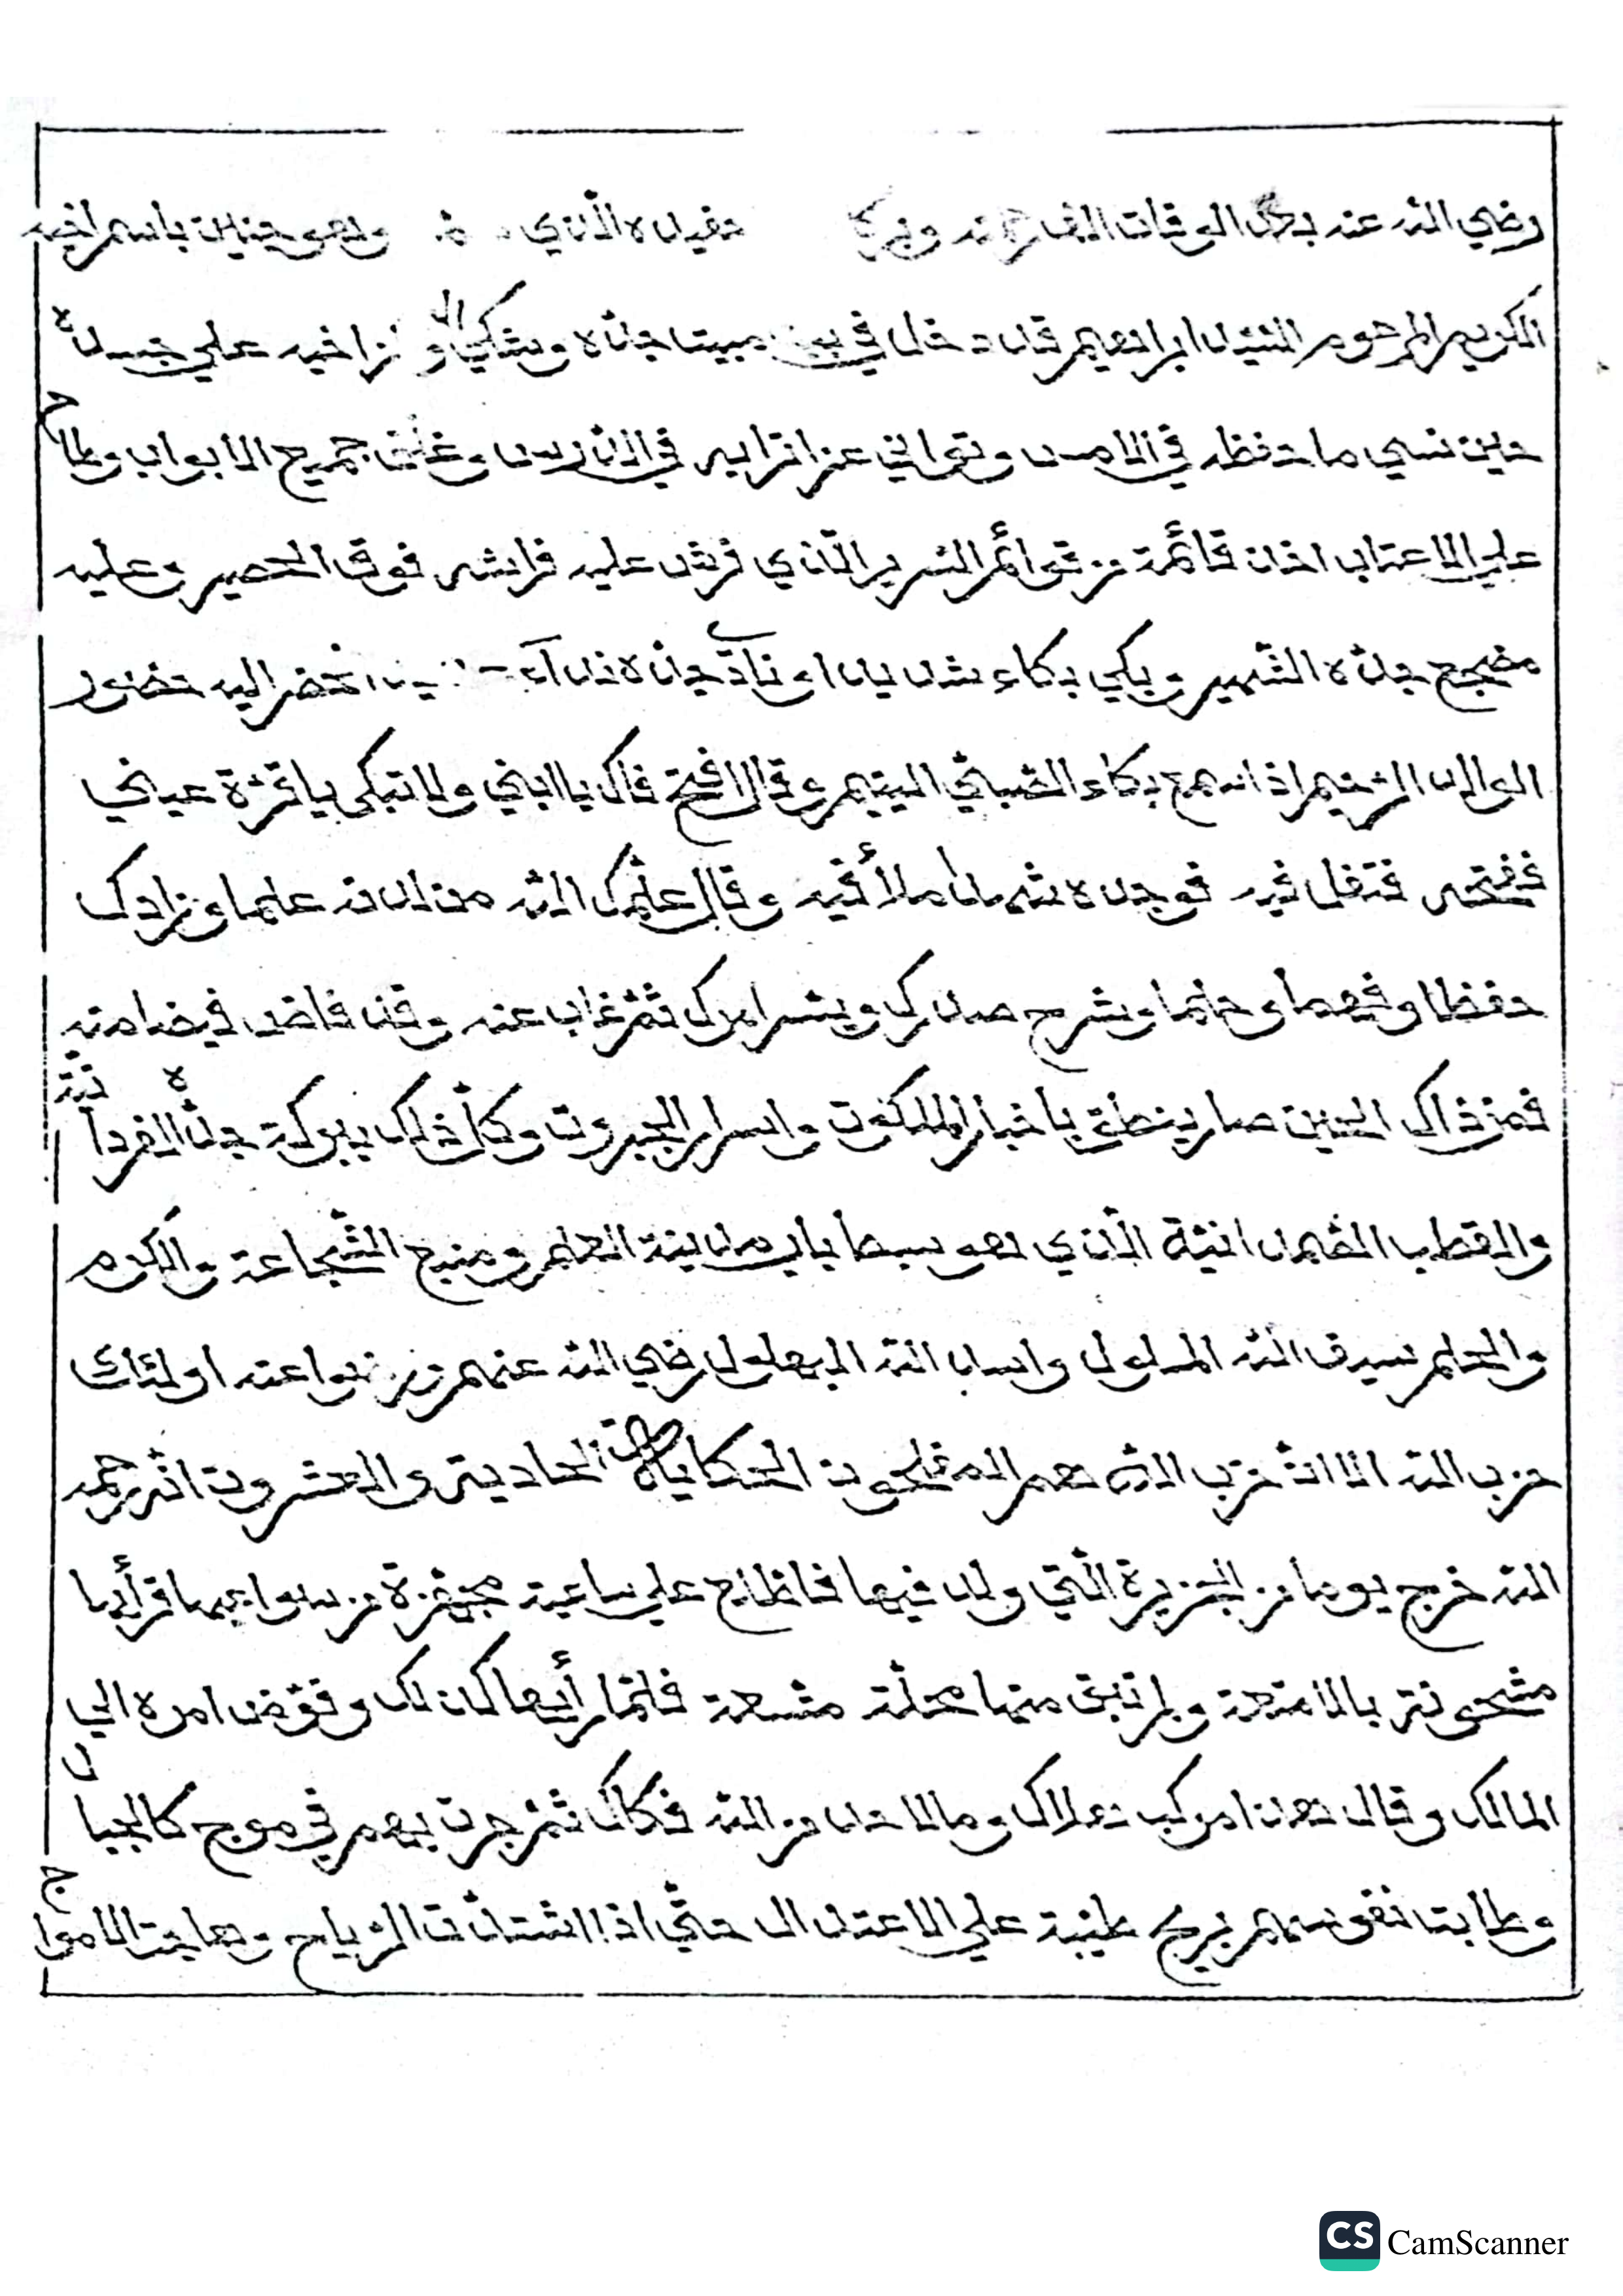 رضي الله عنه بعد الوفات حفيده الذي وهو حينئذ باسم اخيه
الكريم المرحوم السيد ابراهيم قد دخل في مبيت جده وشكي اخيه علي جسده
حين نسي ما حفظه في الامس وتواني عن اترابه في الدرس وغلق جميع الابواب وطاح
علي الاعتاب اخذ قائمة من قوائم السرير الذي فرش عليه فراشه فوق الحصير وعليه
مضجع جده الشهير وبكي بكاء شديدا ونادي جده ندآء حضر اليه حضور
الوالد الرحيم اذا سمع بكاء الصبي اليتيم وقال افتح فاك يا ابني ولا تبكي يا قرة عيني
ففتحه فتفل فيه فوجده شهدا ملأ فيه وقال علمك الله من لدنه علما وزادك
حفظا وفهما وحلما وشرح صدرك ويسر امرك ثم غاب عنه وقد فاض فيضا منه
فمن ذاك الحين صار ينطق باخبار الملكوت واسرار الجبروت وكل ذلك ببركة جده الفرد
والقطب الصمدانية الذي هو سبط باب مدينة العلم ومنبع الشجاعة والكرم
والحلم سيف الله المسلول واسد الله البهلول رضي الله عنهم ورضوا عنه اولئك
حزب الله الا ان حزب الله هم المفلحون الحكاية الحادية والعشرون انه رحمه
الله خرج يوما من الجزيرة التي ولد فيها فاطلع علي ساعية مجهزة من سواعيها فرأيها
مشحونة بالامتعة ولم تبق منها محلة مشعة فلما رأيها كذلك وفوض امره الي
المالك وقال هذا مركب هلاك وما لاحد من الله فكاك ثم جرت بهم في موج كالجبال
وطابت نفوسهم بريح طيبة علي الاعتدال حتي اذا اشتدت الرياح وهاجت الامواج
CS CamScanner